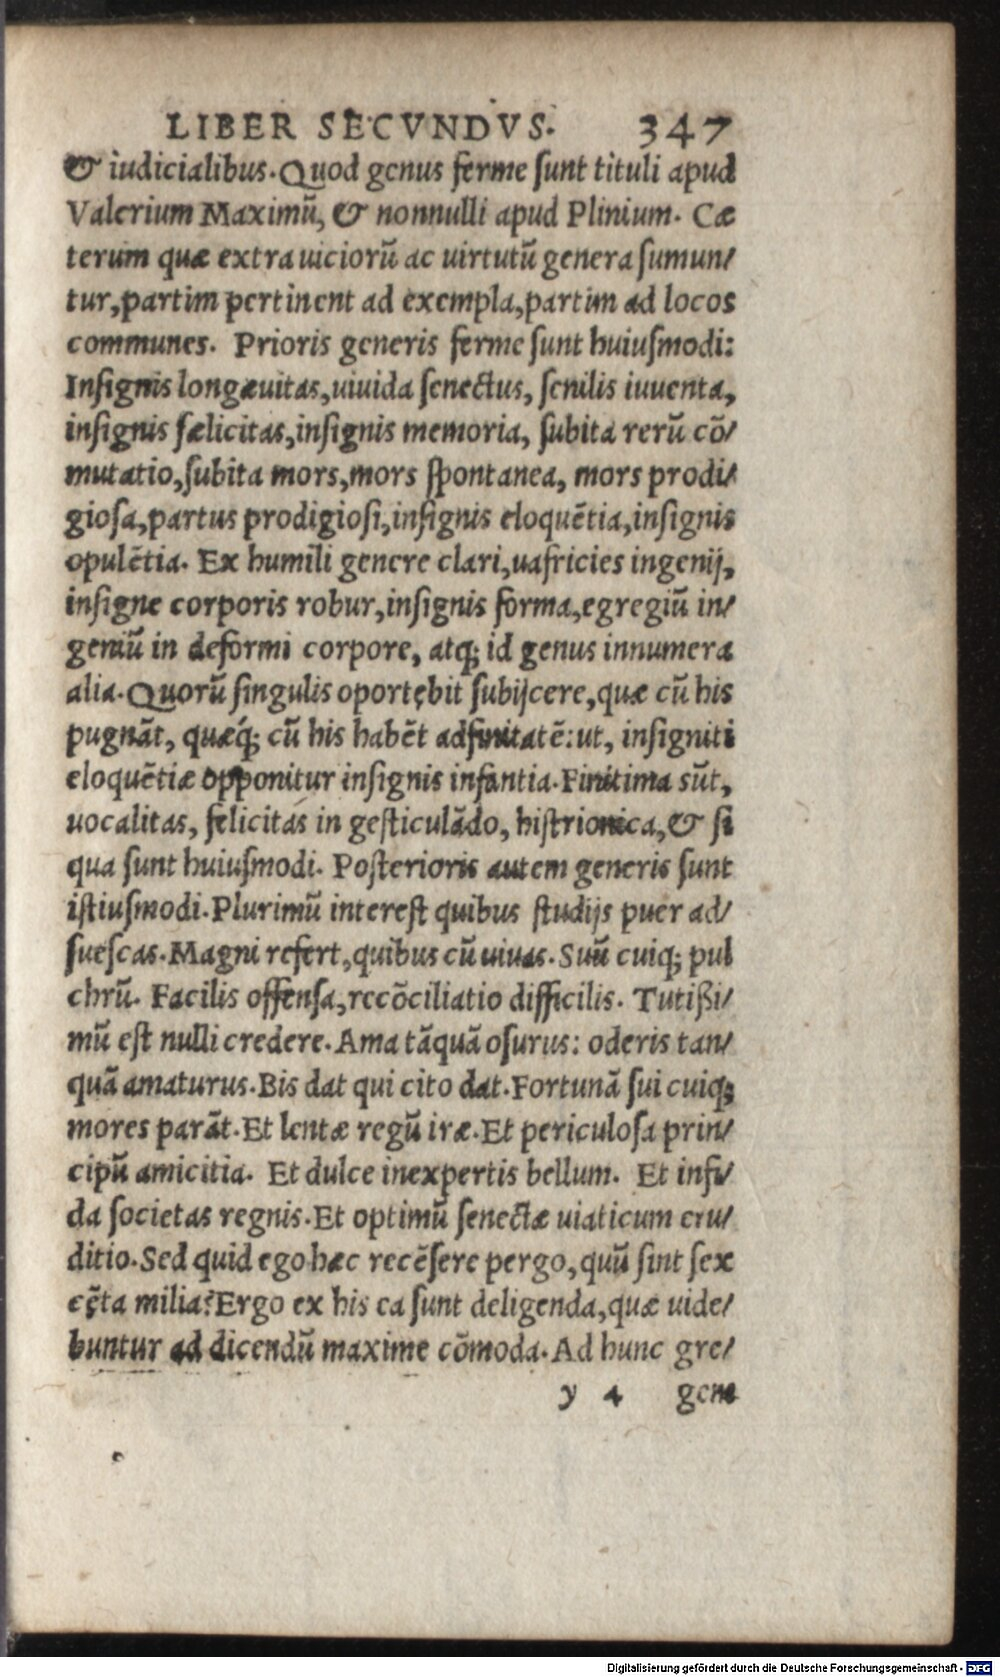 LIBER SECVNDVS. 347
& iudicialibus. Quod genus ferme sunt tituli apud
Valerium Maximũ, & nonnulli apud Plinium. Cæ
terum quæ extra uiciorũ ac uirtutũ genera sumun/
tur, partim pertinent ad exempla, partim ad locos
communes. Prioris generis ferme sunt huiusmodi:
Insignis longæuitas, uiuida senectus, senilis iuuenta,
insignis fælicitas, insignis memoria, subita rerũ cõ/
mutatio, subita mors, mors spontanea, mors prodi/
giosa, partus prodigiosi, insignis eloquẽtia, insignis
opulẽtia. Ex humili genere clari, uafricies ingenij,
insigne corporis robur, insignis forma, egregiũ in/
geniũ in deformi corpore, atq; id genus innumera
alia. Quorũ singulis oportębit subijcere, quæ cũ his
pugnãt, quæq́; cũ his habẽt adfinitatẽ: ut, insigniti
eloquẽtiæ opponitur insignis infantia. Finitima sũt,
uocalitas, felicitas in gesticulãdo, histrionica, & si
qua sunt huiusmodi. Posterioris autem generis sunt
istiusmodi. Plurimũ interest quibus studijs puer ad/
suescas. Magni refert, quibus cũ uiuas. Suũ cuiq; pul
chrũ. Facilis offensa, recõciliatio difficilis. Tutißi/
mũ est nulli credere. Ama tãquã osurus: oderis tan/
quã amaturus. Bis dat qui cito dat. Fortunã sui cuiq;
mores parãt. Et lentæ regũ iræ. Et periculosa prin/
cipũ amicitia. Et dulce inexpertis bellum. Et infi/
da societas regnis. Et optimũ senectæ uiaticum eru/
ditio. Sed quid ego hæc recẽsere pergo, quũ sint sex
cẽta milia? Ergo ex his ea sunt deligenda, quæ uide/
buntur ad dicendũ maxime cõmoda. Ad hunc gre/
y 4 gem
Digitalisierung gefördert durch die Deutsche Forschungsgemeinschaft - DFG